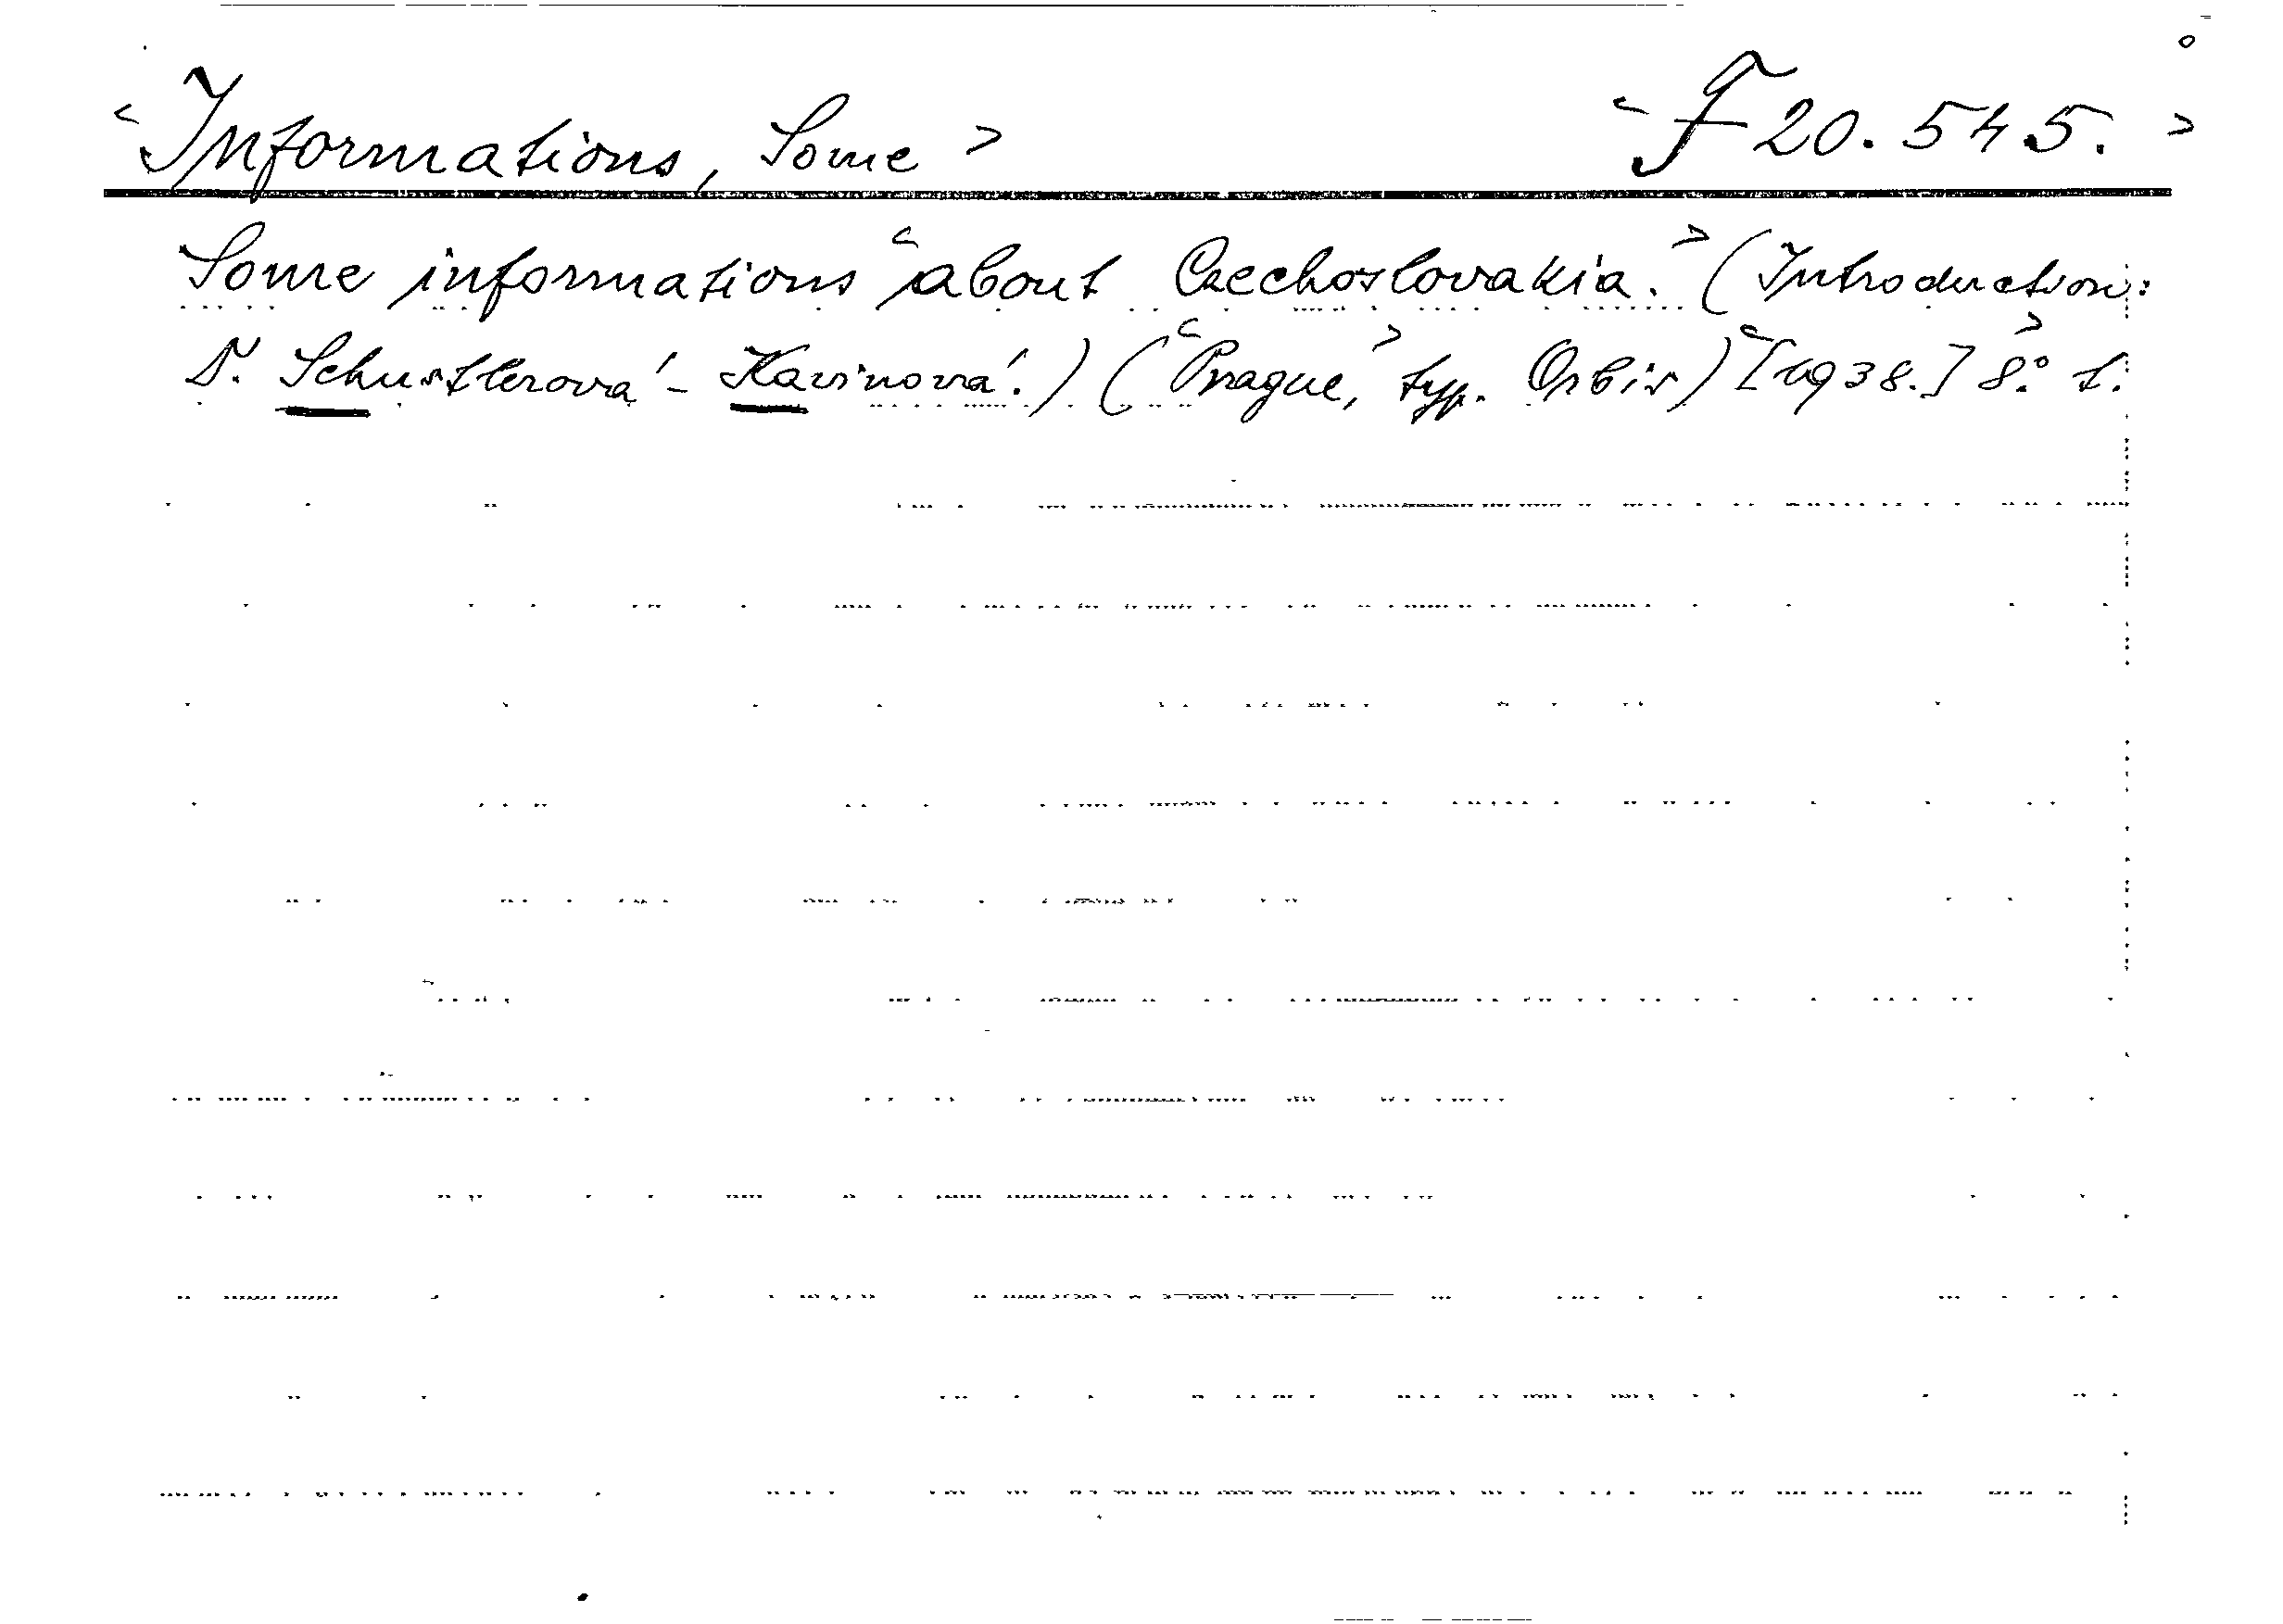 <Informations, Some> <F 20.545.>
Some informations <about Czechoslovakia.> (Introduction:
D. Schustlerová-Kavinová.) (<Prague,> typ. Orbis) <[1938.] 8.°> l.